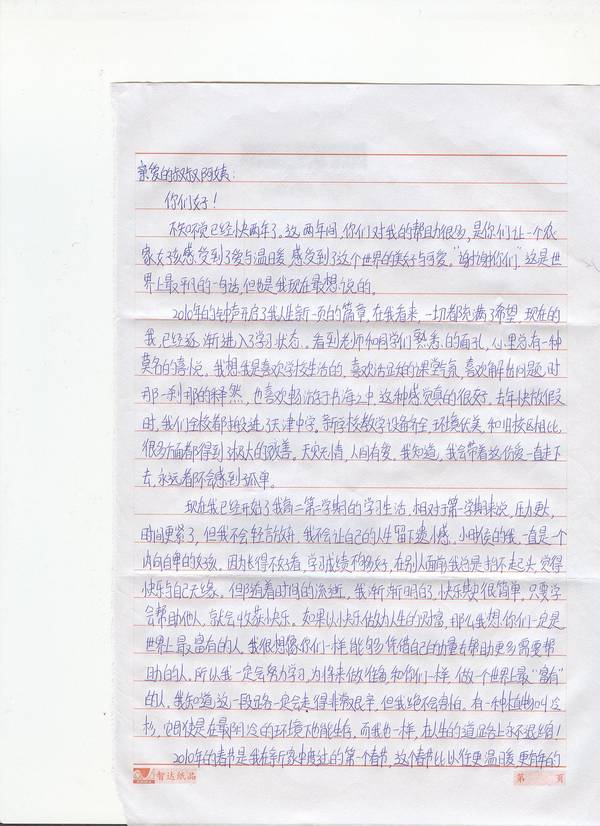 亲爱的叔叔阿姨：
你们好！
不知不觉已经快两年了。这两年间，你们对我的帮助很多，是你们让一个农
家女孩感受到了爱与温暖，感受到了这个世界的美好与可爱。“谢谢你们”这是世
界上最平凡的一句话，但也是我现在最想说的。
2010年的钟声开启了我人生新一页的篇章，在我看来，一切都充满了希望。现在的
我，已经逐渐进入了学习状态。看到老师和同学们熟悉的面孔，心里总有一种
莫名的喜悦。我想我是喜欢学校生活的，喜欢活跃的课堂气氛，喜欢解出问题时
那一刹那的释然，也喜欢畅游于书海之中，这种感觉真的很好。去年快放假
时，我们全校都搬进了天津中学。新学校教学设备齐全，环境优美，和旧校区相比，
很多方面都得到了极大的改善。天灾无情，人间有爱，我知道，我会带着这份爱一直走下
去，永远都不会感到孤单。
现在我已经开始了我高二第二学期的学习生活，相对于第一学期来说，压力更大，
时间更紧了，但我不会轻言放弃，我不会让自己的人生留下遗憾。小时候的我，一直是一个
内向自卑的女孩。因为长得不好看，学习成绩不够好，在别人面前我总是抬不起头，觉得
快乐与自己无缘。但随着时间的流逝，我渐渐明白了，快乐其实很简单，只要学
会帮助他人，就会收获快乐。如果以快乐做为人生的财富，那么我想你们一定是
世界上最富有的人，我很想像你们一样，能够凭借自己的力量去帮助更多需要帮
助的人。所以我一定会努力学习，为将来做准备，和你们一样，做一个世界上最“富有”
的人，我知道这一段路一定会走得非常艰辛，但我绝不会害怕。有一种植物叫冷
杉，它即使是在最阴冷的环境下也能生存，而我也一样，在人生的道路上永不退缩！
2010年的春节是我在新家中度过的第一个春节，这个春节比以往更温暖更有年的
智达纸品
第 页